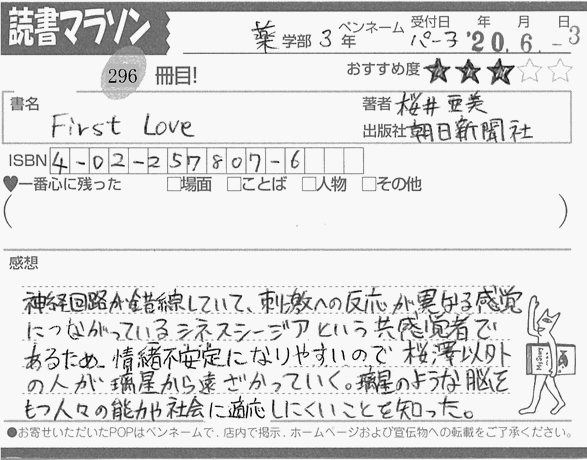 読書マラソン
薬 学部 3 年 ペンネーム パー子 受付日 '20 年 6 月 -3 日
296 冊目! おすすめ度 ★★★☆☆
書名 First Love
著者 桜井亜美
出版社 朝日新聞社
ISBN 4-02-257807-6
♥一番心に残った □場面 □ことば □人物 □その他
( )
感想
神経回路が錯線していて、刺激への反応が異なる感覚
につながっているシネスシージアという共感覚者で
あるため、情緒不安定になりやすいので桜澤以外
の人が璃星から遠ざかっていく。璃星のような脳を
もつ人々の能力や社会に適応しにくいことを知った。
●お寄せいただいたPOPはペンネームで、店内で掲示、ホームページおよび宣伝物への転載をご了承ください。